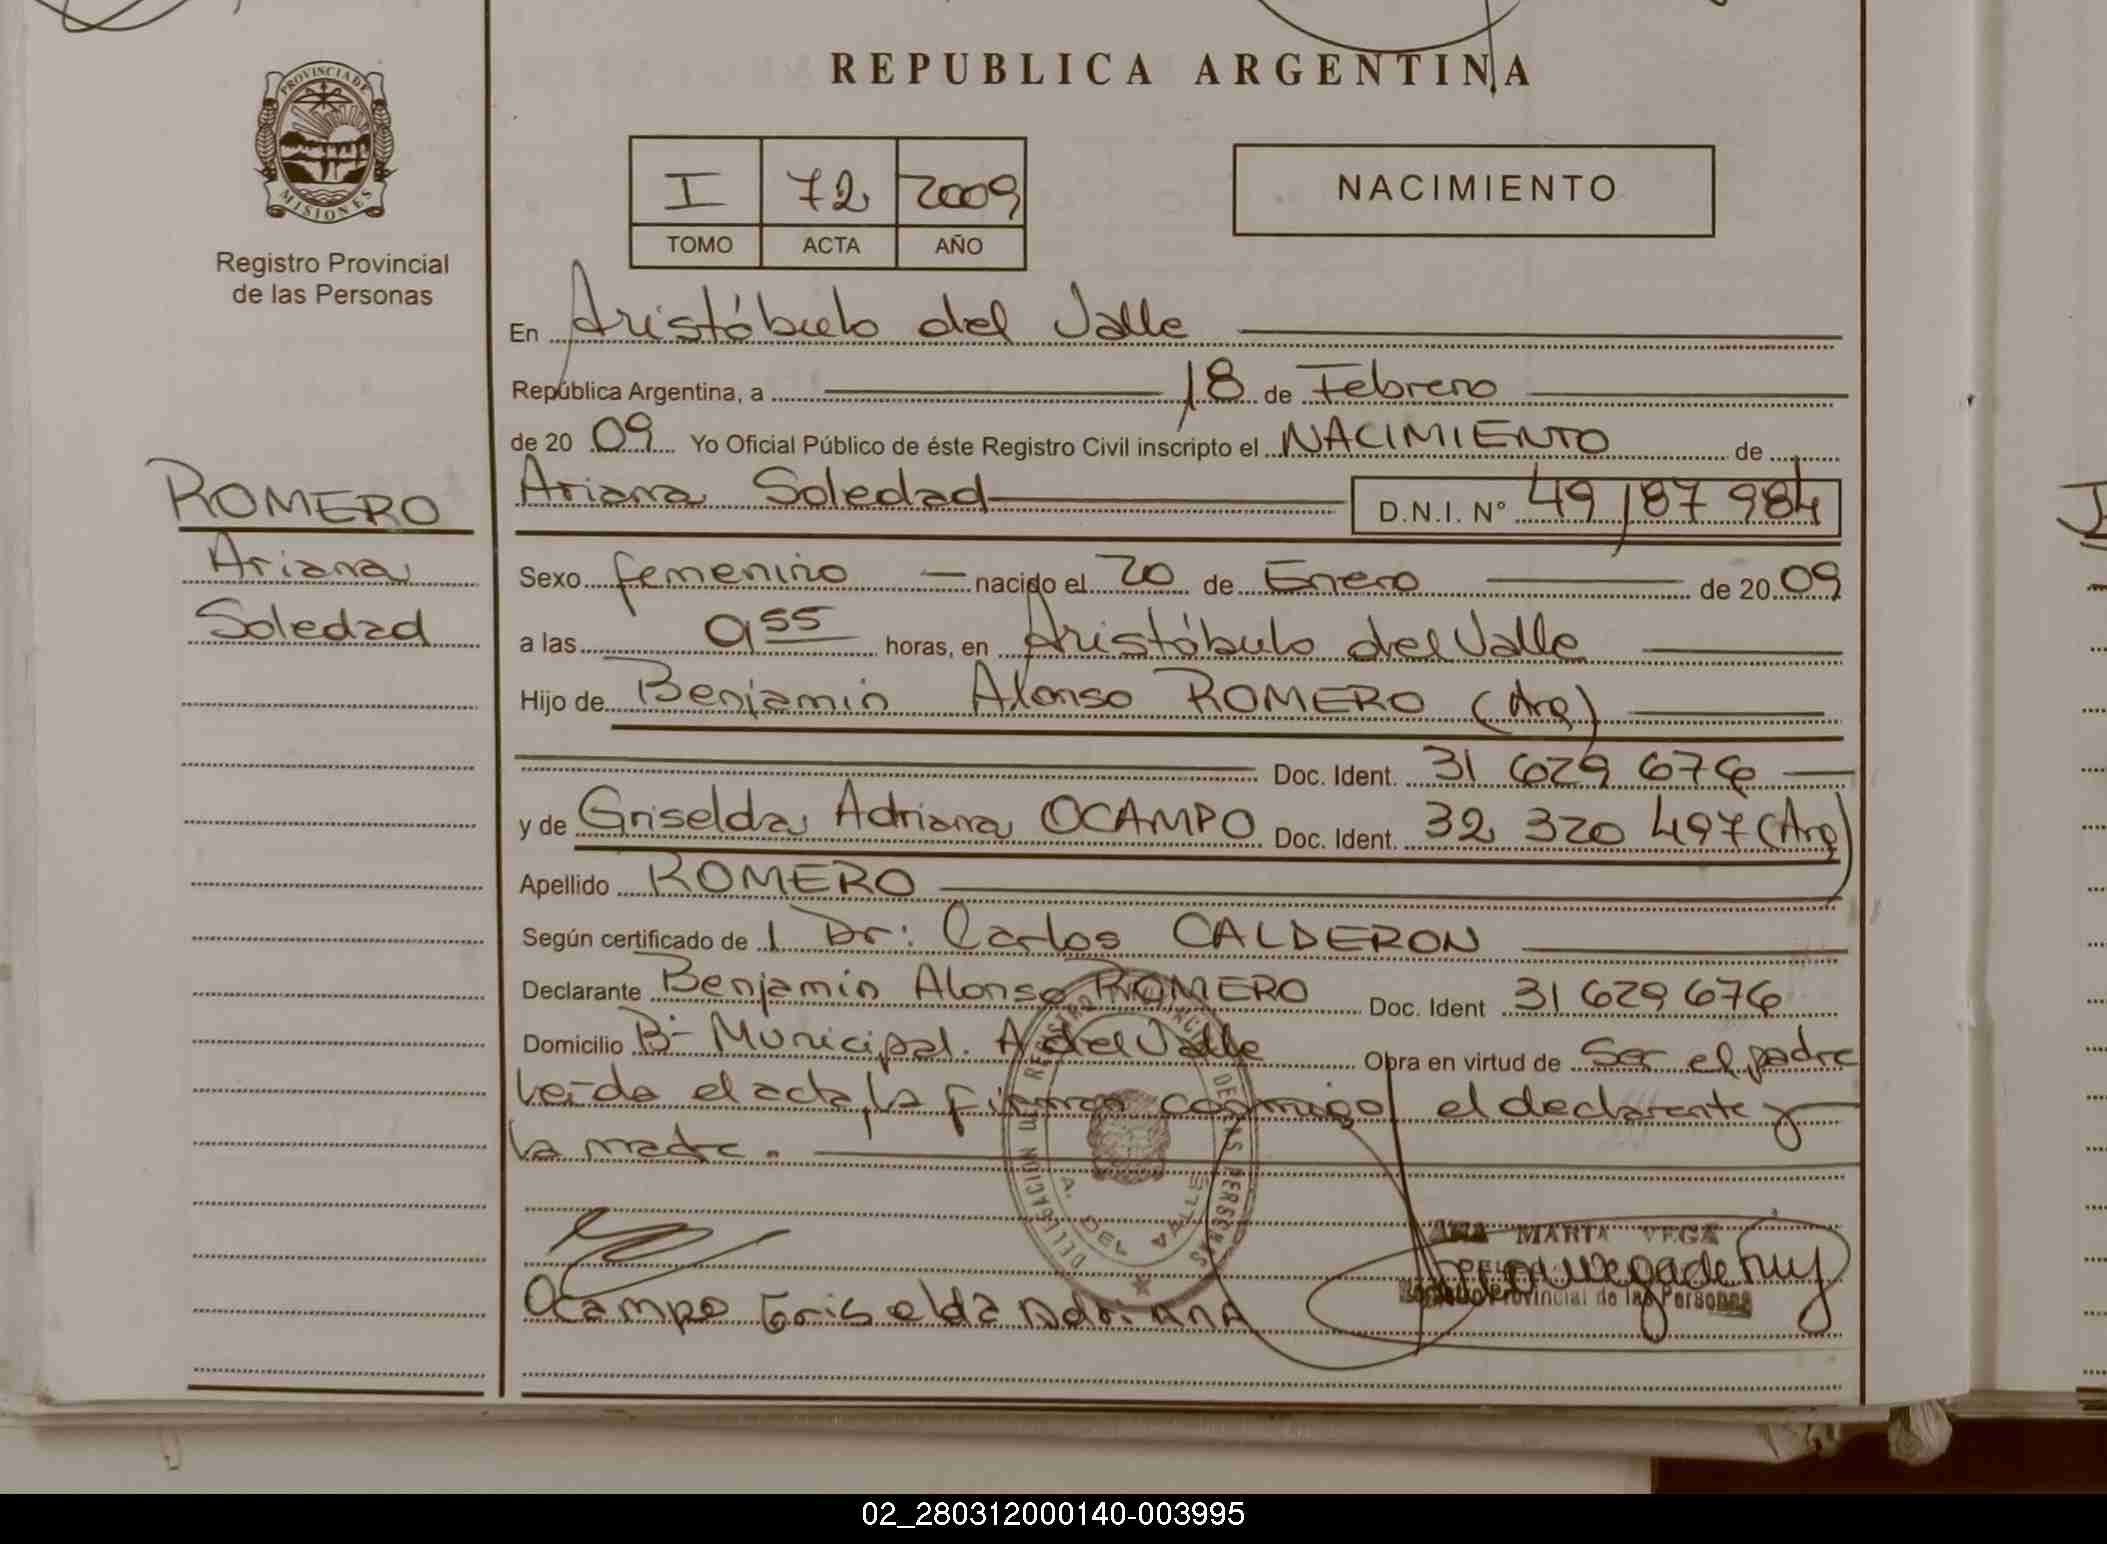 REPUBLICA ARGENTINA
PROVINCIA DE MISIONES
Registro Provincial
de las Personas
I 72 2009
TOMO ACTA AÑO
NACIMIENTO
En Aristóbulo del Valle
República Argentina, a 18 de Febrero
de 20 09 Yo Oficial Público de éste Registro Civil inscripto el NACIMIENTO de
ROMERO
Ariana
Soledad
Ariana Soledad D.N.I. N° 49 187 984
Sexo femenino nacido el 20 de Enero de 20 09
a las 9 55 horas, en Aristóbulo del Valle
Hijo de Benjamin Alonso ROMERO (Arg)
Doc. Ident. 31 629 676
y de Griselda Adriana OCAMPO Doc. Ident. 32 320 497 (Arg)
Apellido ROMERO
Según certificado de Dr: Carlos CALDERON
Declarante Benjamin Alonso ROMERO Doc. Ident 31 629 676
Domicilio B- Municipal. A del Valle Obra en virtud de Ser el padre
Leida el acta, la firman conmigo el declarante y
la madre.
A. DEL VALLE
ANA MARIA VEGA
Registro Provincial de las Personas
Ocampo Griselda Adriana
02_280312000140-003995